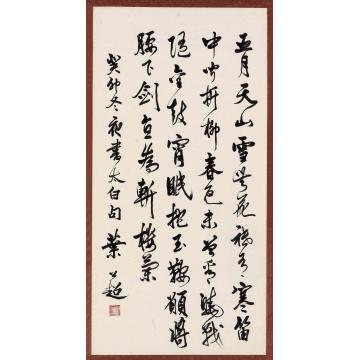 五月天山雪無花祇有寒笛
中聞折柳春色未曾看曉戰
隨金鼓宵眠抱玉鞍願將
腰下劍直為斬樓蘭
癸卯冬夜書太白句 葉公超